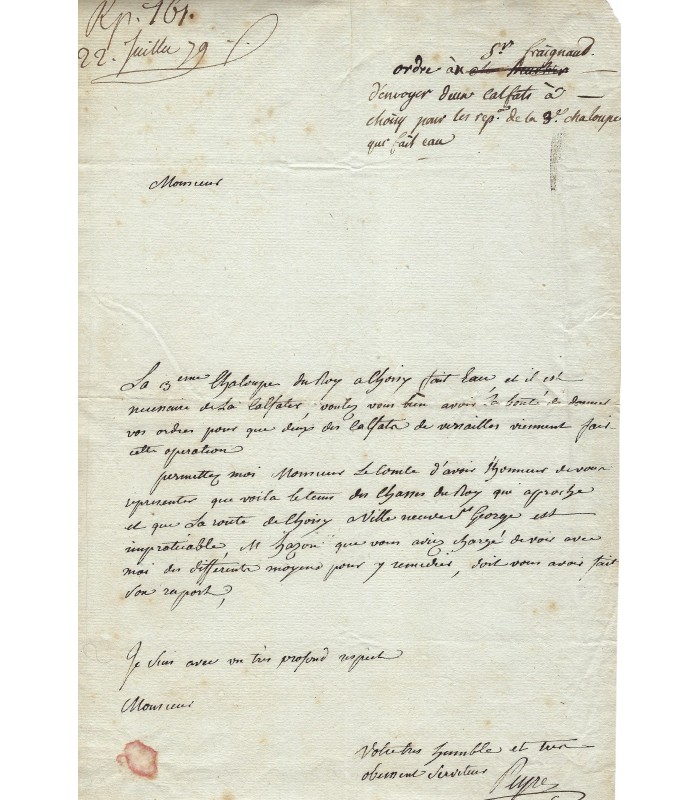 Rp. 161.
22. Juillet 79
Sr. fraignaud.
ordre à
d'envoyer deux Calfats à
choisy pour les rep.ons de la 3e. chaloupe
qui fait eau
Monsieur
La 3eme Chaloupe du Roy a Choisy fait Eau, et il est
necessaire de La Calfater, voulez vous bien avoir la bonté de donner
vos ordres pour que deux des Calfats de versailles viennent faire
cette operation
permettez moi Monsieur Le Comte d'avoir l'honneur de vous
representer que voila le tems des Chasses du Roy qui aproche
et que La route de Choisy a Ville neuve St George est
impraticable, M hazon que vous aviez chargé de voir avec
moi des differents moyens pour y remedier, doit vous avoir fait
son raport,
Je suis avec un très profond respect
Monsieur
Votre tres humble et tres
obeissant Serviteur
Peyre